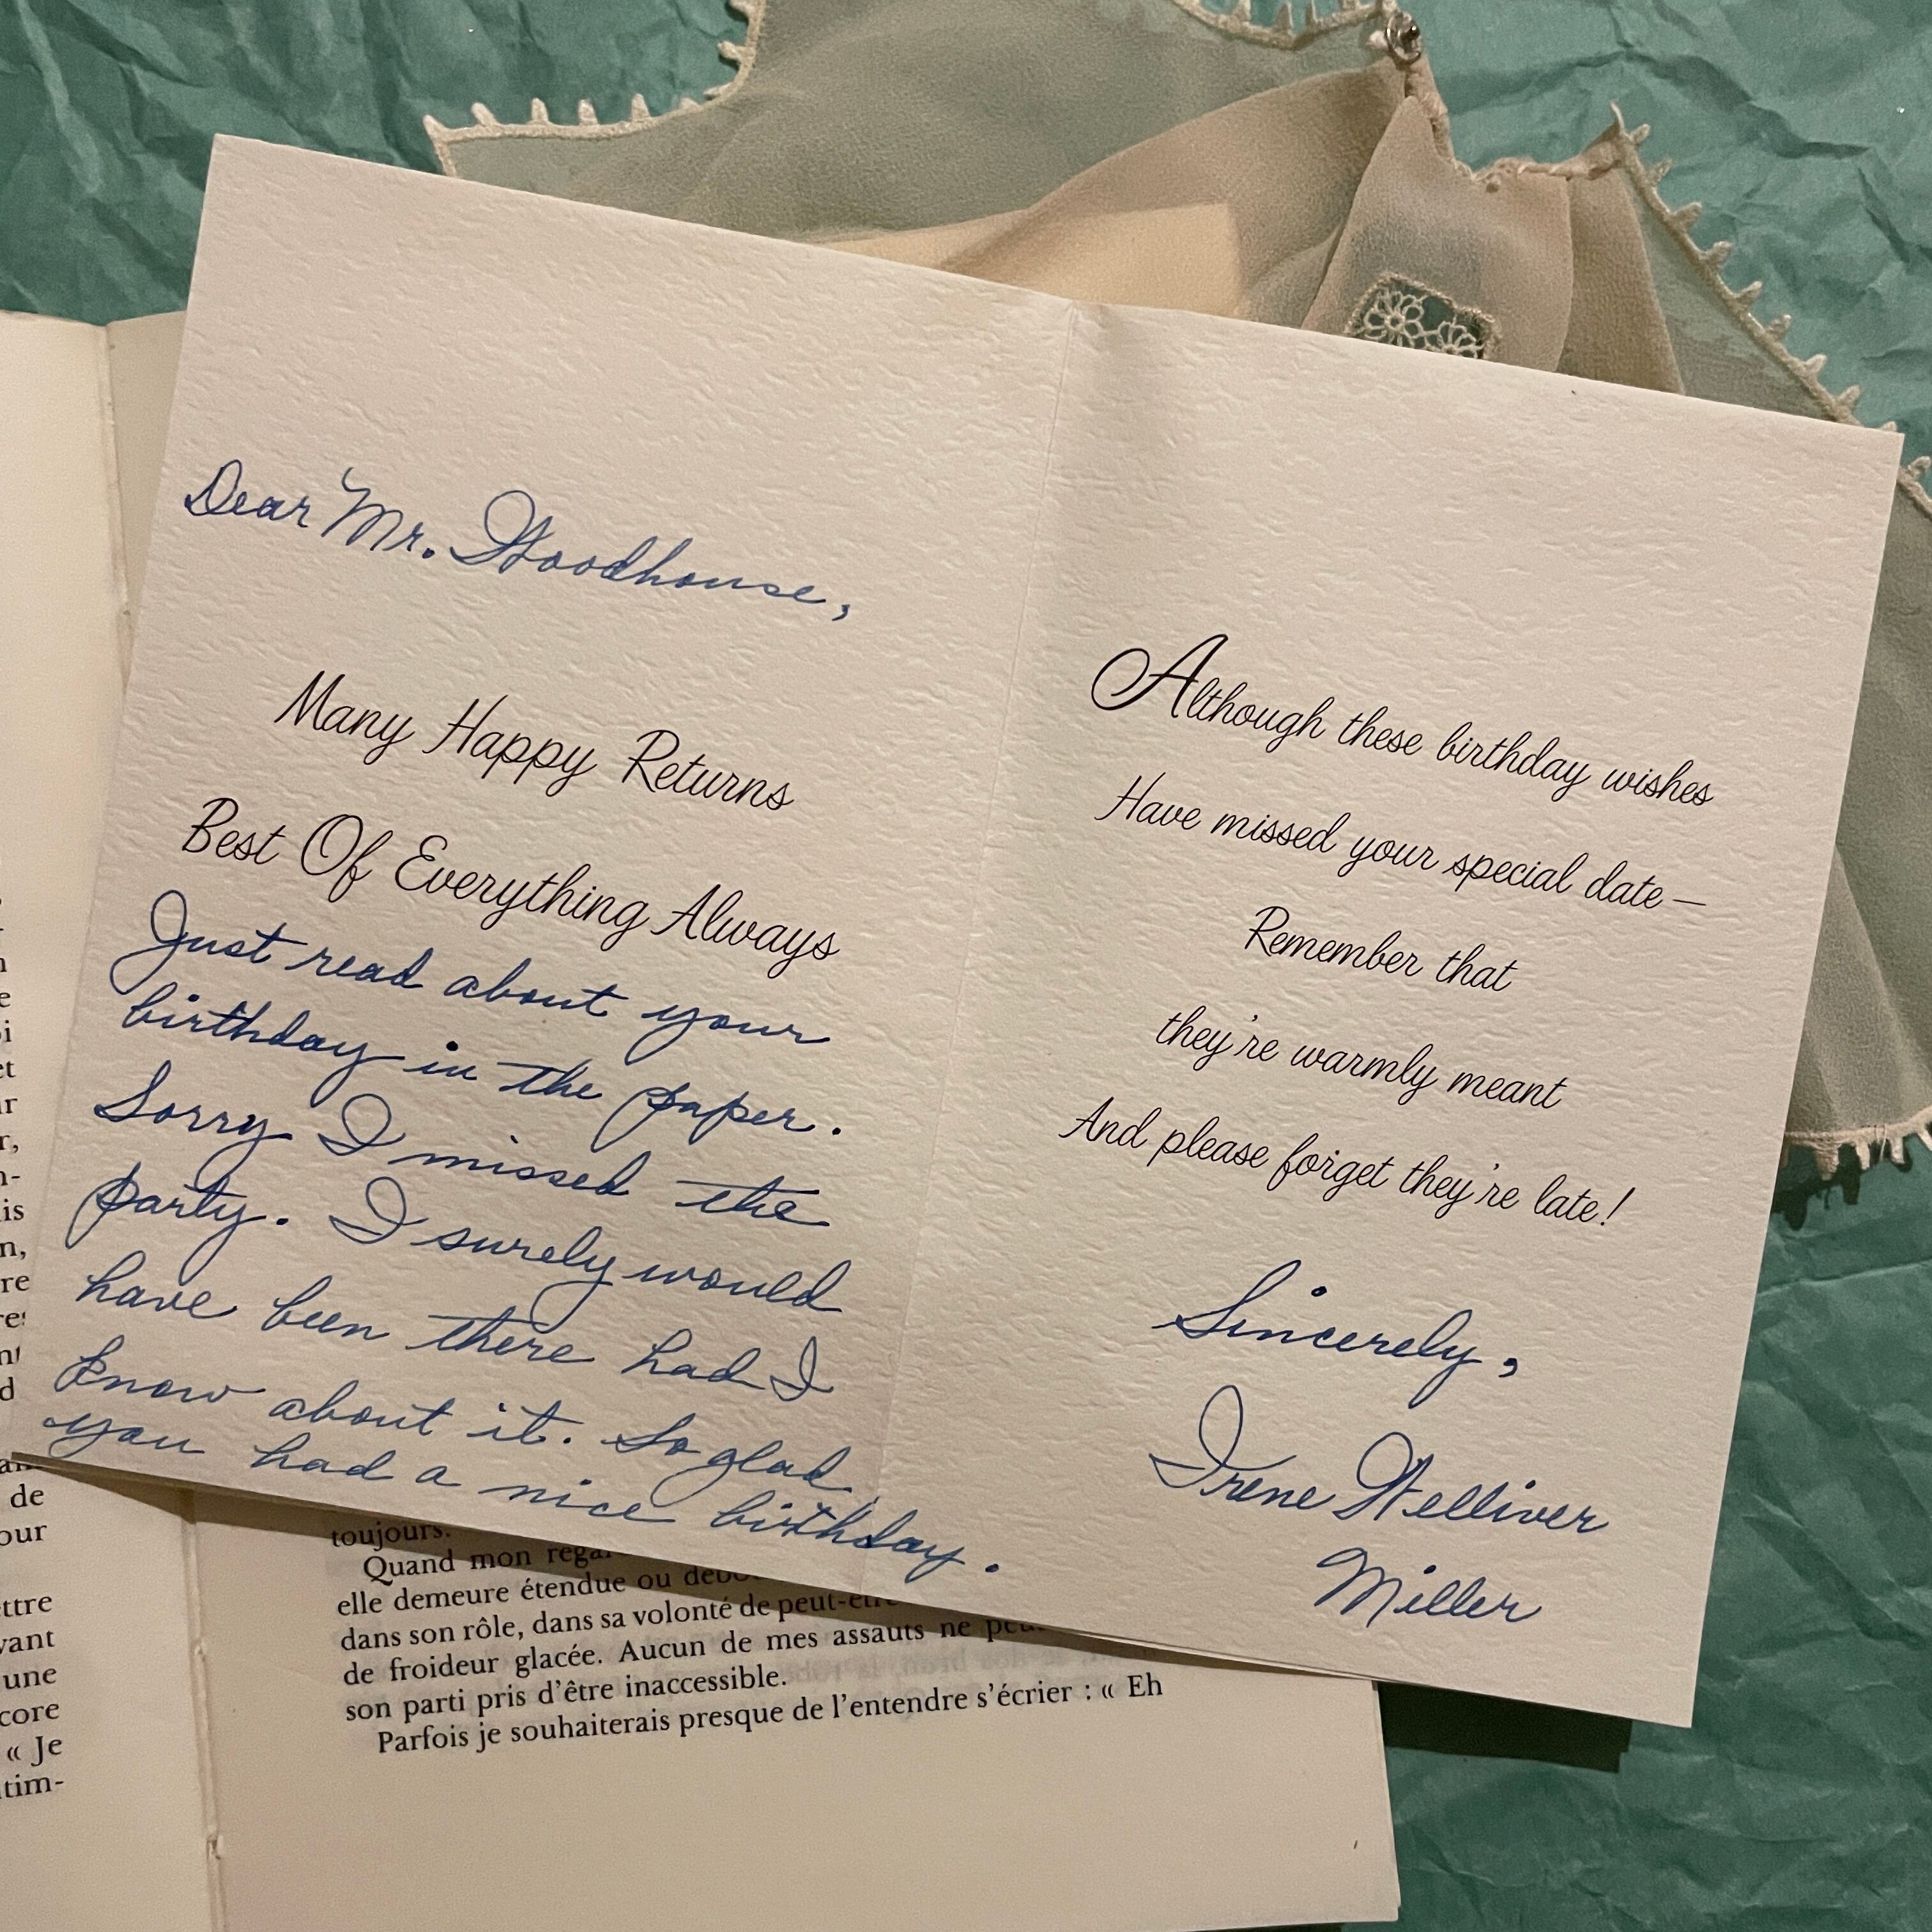 Dear Mr. Woodhouse,
Many Happy Returns
Best Of Everything Always
Just read about your
birthday in the paper.
Sorry I missed the
party. I surely would
have been there had I
know about it. So glad
you had a nice birthday.
Although these birthday wishes
Have missed your special date—
Remember that
they're warmly meant
And please forget they're late!
Sincerely,
Irene Welliver
Miller
de
our
ttre
vant
une
core
« Je
tim-
toujours.
Quand mon
elle demeure étendue ou
dans son rôle, dans sa volonté de
de froideur glacée. Aucun de mes assauts ne
son parti pris d'être inaccessible.
Parfois je souhaiterais presque de l'entendre s'écrier : « Eh